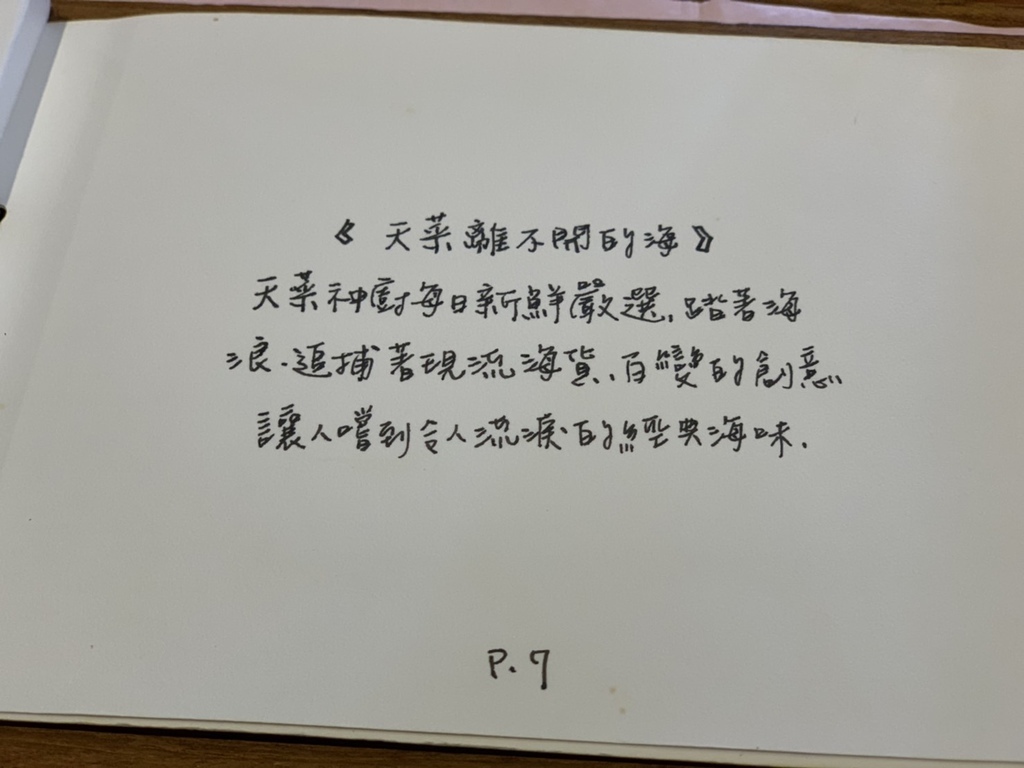 《天菜離不開的海》
天菜神廚每日新鮮嚴選,踏著海
浪.追捕著現流海貨、百變的創意
讓人嚐到令人流淚的經典海味.
P.7